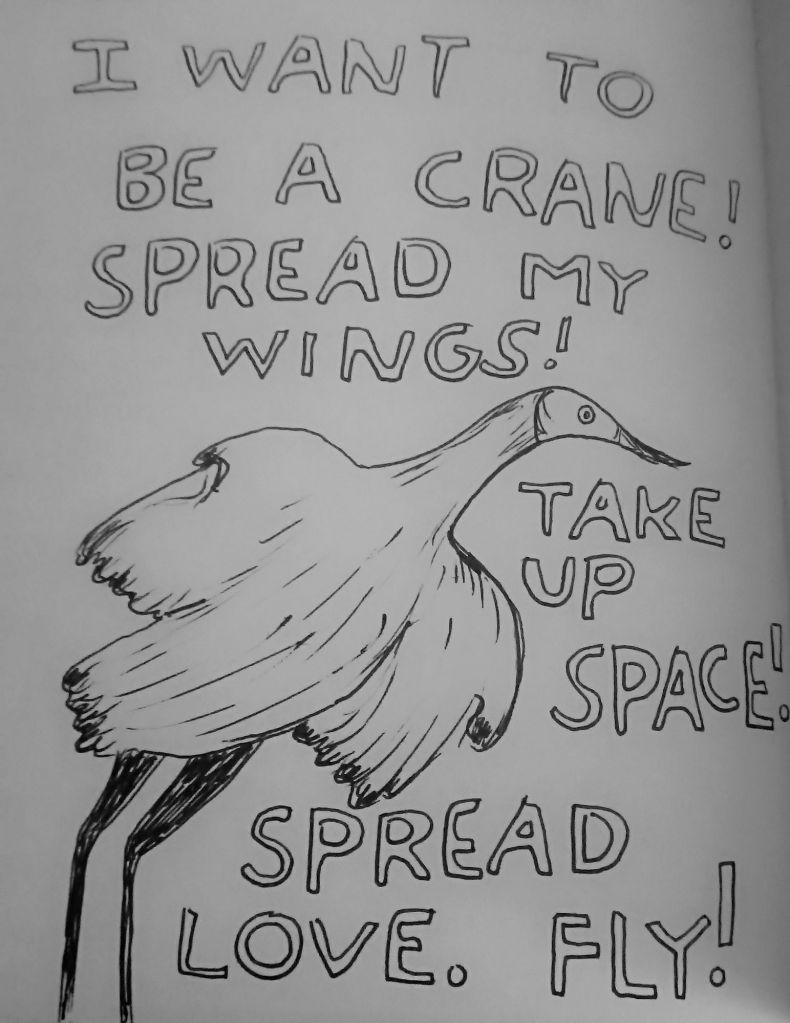 I WANT TO
BE A CRANE!
SPREAD MY
WINGS!
TAKE
UP
SPACE!
SPREAD
LOVE. FLY!